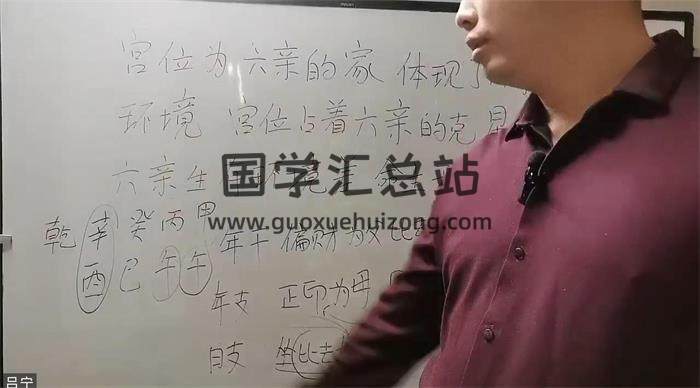 宫位为六亲的家 体现
环境 宫位占着六亲的克
六亲生
国学汇总站
www.guoxuehuizong.com
乾 辛 癸 丙 甲
酉 巳 午 午
年干 偏财为父 比
年支 正印为母
日支 坐比
吕宁